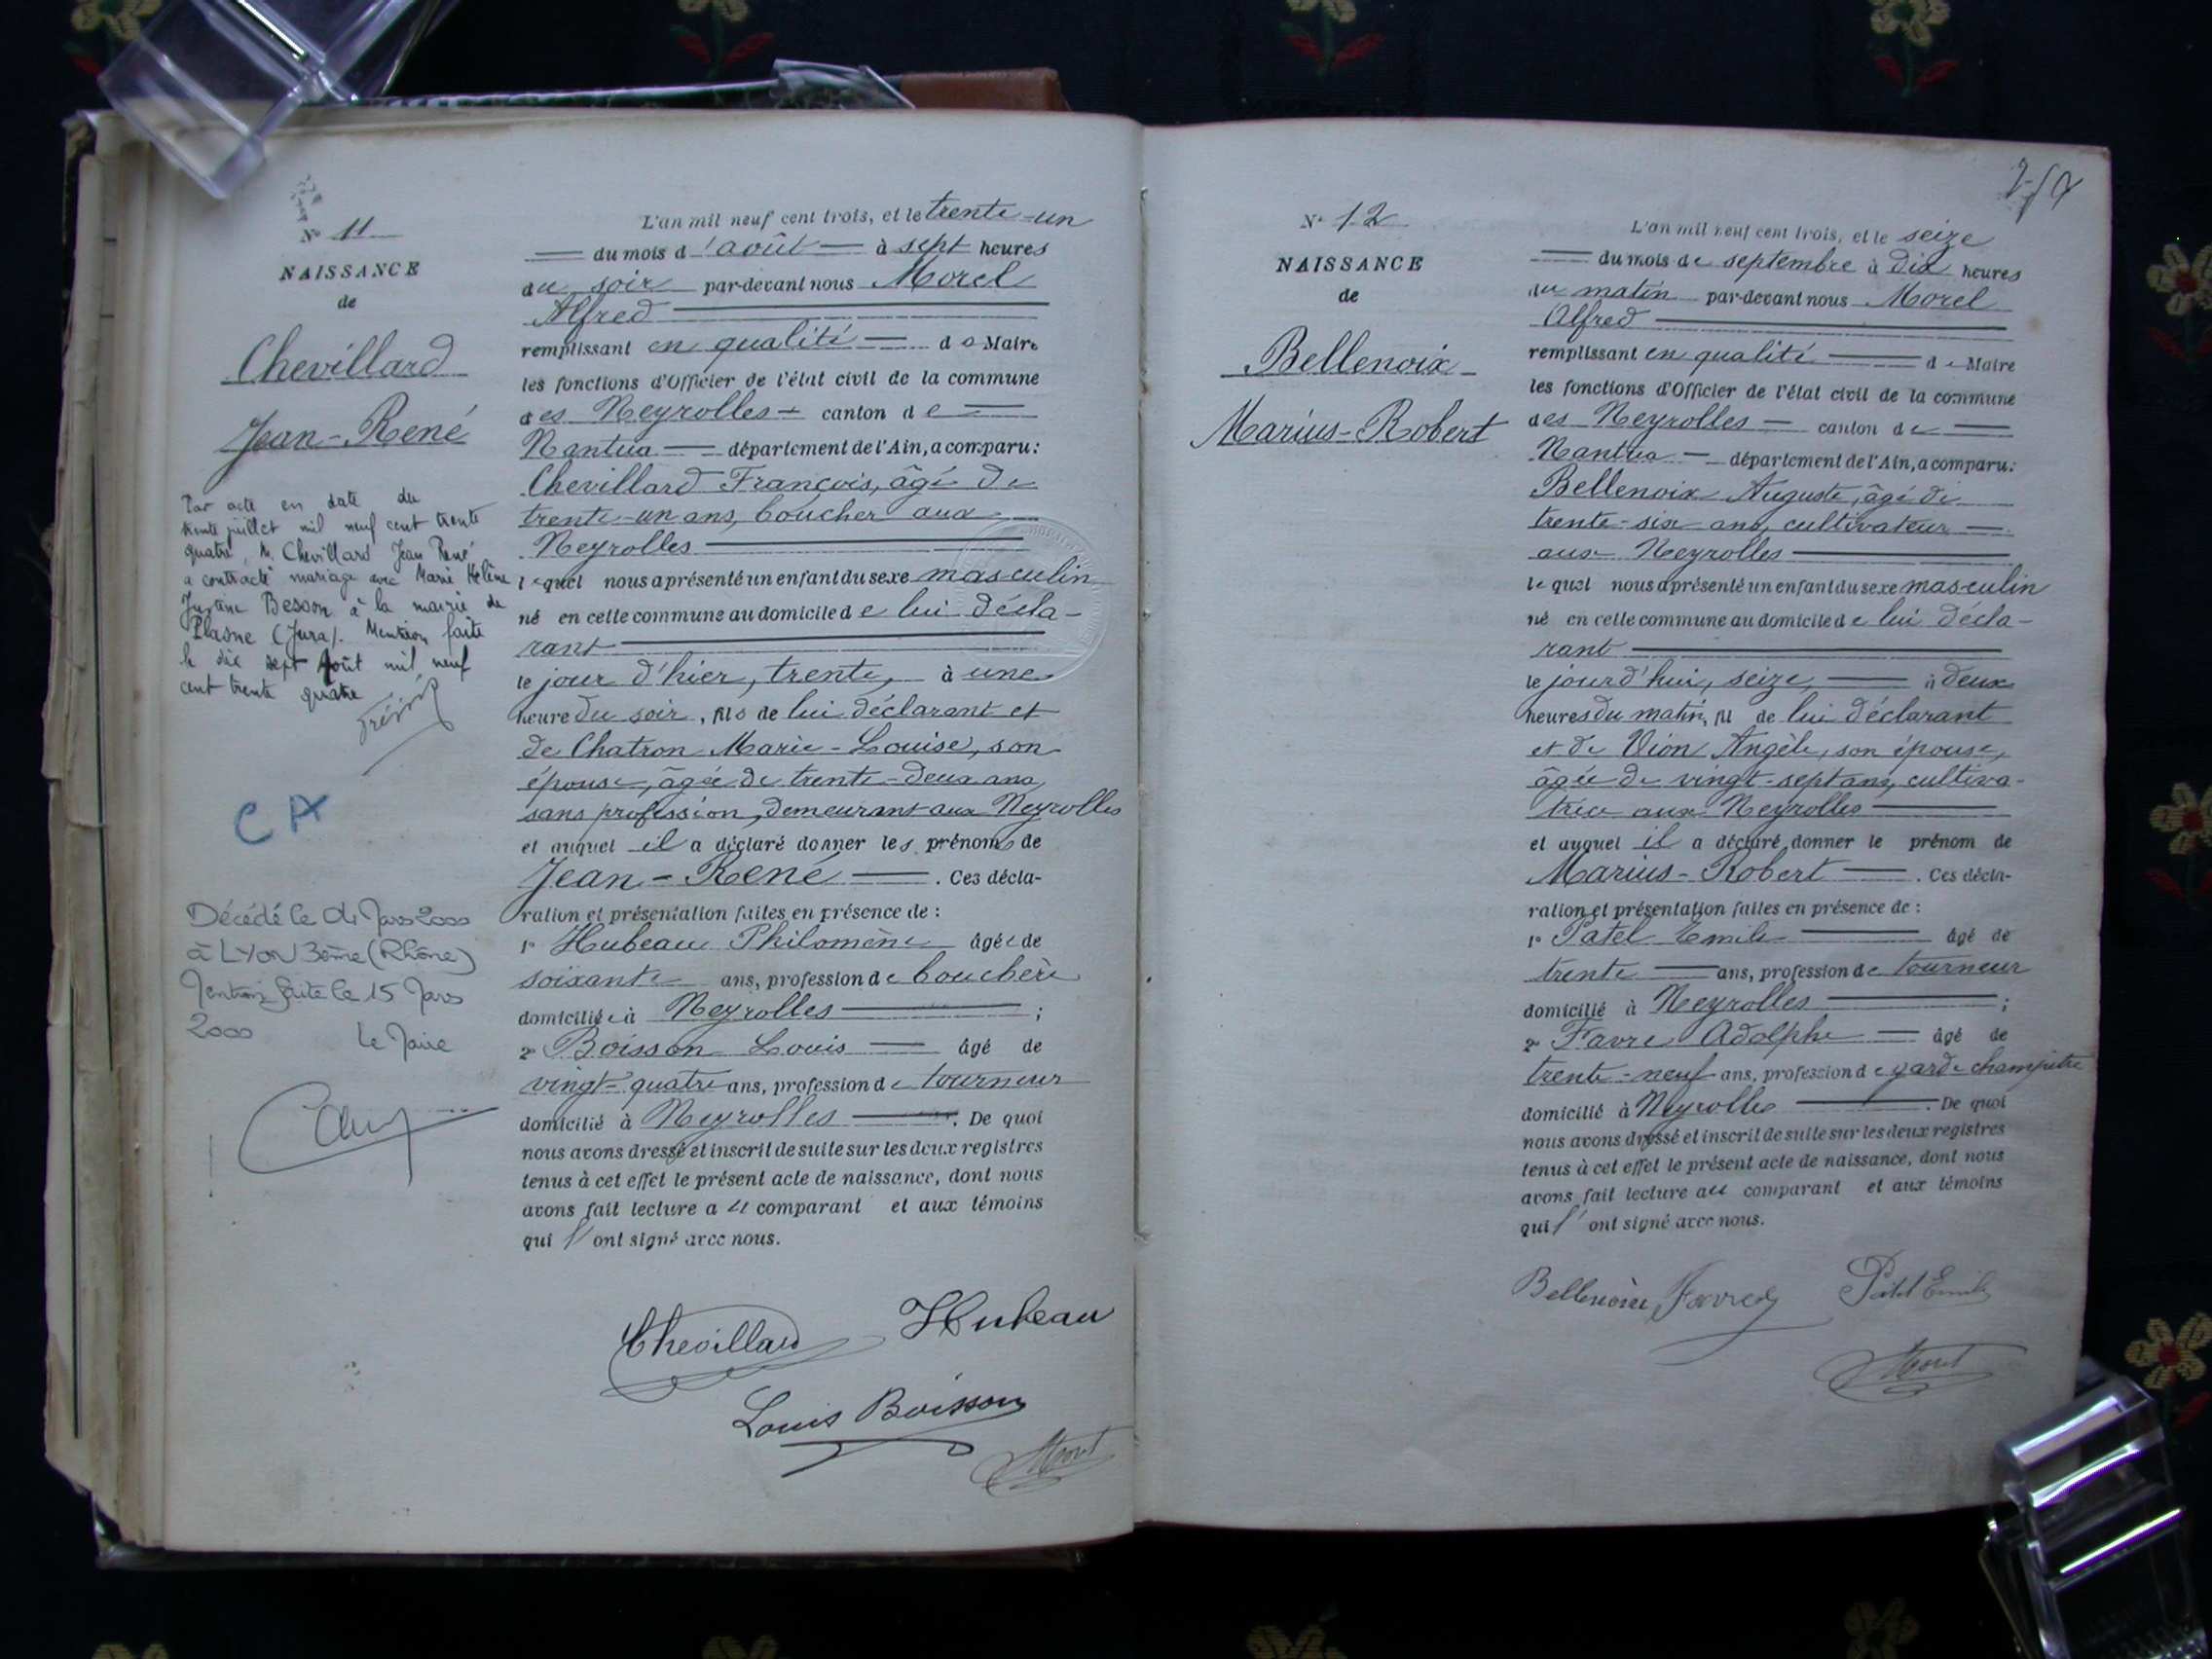 Nº 11
NAISSANCE
de
Chevillard
Jean-René
Par acte en date du
trente juillet mil neuf cent trente
quatre, M. Chevillard Jean René
a contracté mariage avec Marie Hélène
Justine Besson à la mairie de
Plasne (Jura). Mention faite
le dix sept Août mil neuf
cent trente quatre
CA
Décédé le Mars 2000
à LYON 3ème (Rhône)
Mention faite le 15 Mars
2000 Le Maire
L'an mil neuf cent trois, et le trente-un
du mois d'août à sept heures
du soir par-devant nous Morel
Alfred
remplissant en qualité de Maire
les fonctions d'Officier de l'état civil de la commune
des Neyrolles canton de
Nantua département de l'Ain, a comparu:
Chevillard François, âgé de
trente-un ans, boucher aux
Neyrolles
lequel nous a présenté un enfant du sexe masculin
né en cette commune au domicile de lui décla-
rant
le jour d'hier, trente, à une
heure du soir, fils de lui déclarant et
de Chatron Marie-Louise, son
épouse, âgée de trente-deux ans,
sans profession, demeurant aux Neyrolles
et auquel il a déclaré donner les prénoms de
Jean-René. Ces décla-
ration et présentation faites en présence de :
1º Hubeau Philomène âgée de
soixante ans, profession de bouchère
domiciliée à Neyrolles ;
2º Boisson Louis âgé de
vingt-quatre ans, profession de tourneur
domicilié à Neyrolles. De quoi
nous avons dressé et inscrit de suite sur les deux registres
tenus à cet effet le présent acte de naissance, dont nous
avons fait lecture au comparant et aux témoins
qui l'ont signé avec nous.
Chevillard Hubeau
Louis Boisson
Morel
Nº 12
NAISSANCE
de
Bellenoix
Marius-Robert
L'an mil neuf cent trois, et le seize
du mois de septembre à dix heures
du matin par-devant nous Morel
Alfred
remplissant en qualité de Maire
les fonctions d'Officier de l'état civil de la commune
des Neyrolles canton de
Nantua département de l'Ain, a comparu:
Bellenoix Auguste, âgé de
trente-six ans, cultivateur
aux Neyrolles
lequel nous a présenté un enfant du sexe masculin
né en cette commune au domicile de lui décla-
rant
le jourd'hui, seize, à deux
heures du matin, fil de lui déclarant
et de Vion Angèle, son épouse,
âgée de vingt-sept ans, cultiva-
trice aux Neyrolles
et auquel il a déclaré donner le prénom de
Marius-Robert. Ces décla-
ration et présentation faites en présence de :
1º Patel Emile âgé de
trente ans, profession de tourneur
domicilié à Neyrolles ;
2º Favre Adolphe âgé de
trente-neuf ans, profession de garde champêtre
domicilié à Neyrolles. De quoi
nous avons dressé et inscrit de suite sur les deux registres
tenus à cet effet le présent acte de naissance, dont nous
avons fait lecture au comparant et aux témoins
qui l'ont signé avec nous.
Bellenoix Favre Patel Emile
Morel